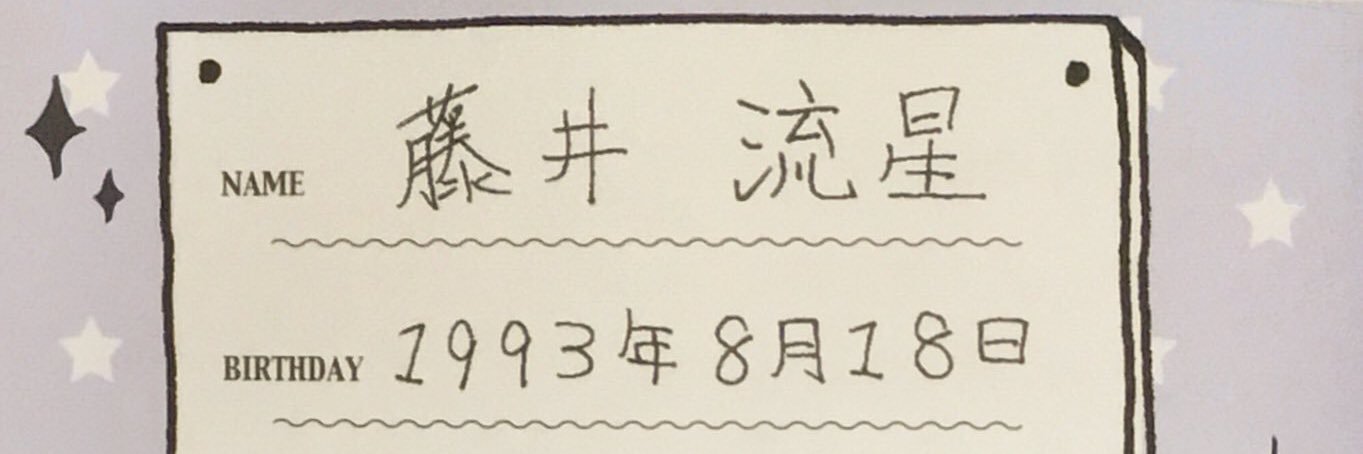 NAME 藤井 流星
BIRTHDAY 1993年8月18日